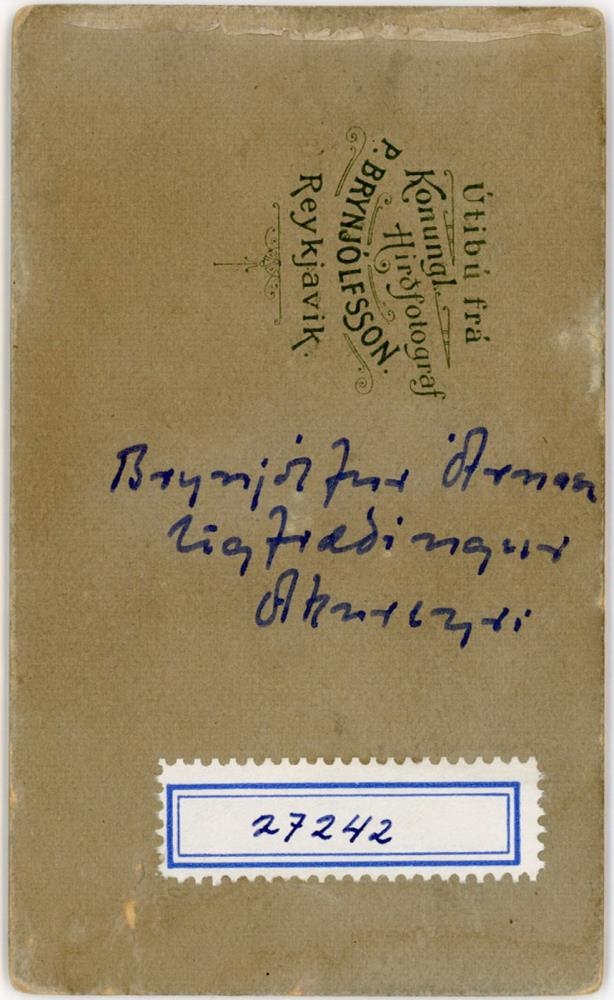 Útibú frá
Konungl. Hirðfotograf
P. BRYNJÓLFSSON.
Reykjavik.
Brynjólfur Árnason
lögfræðingur
Akureyri
27242